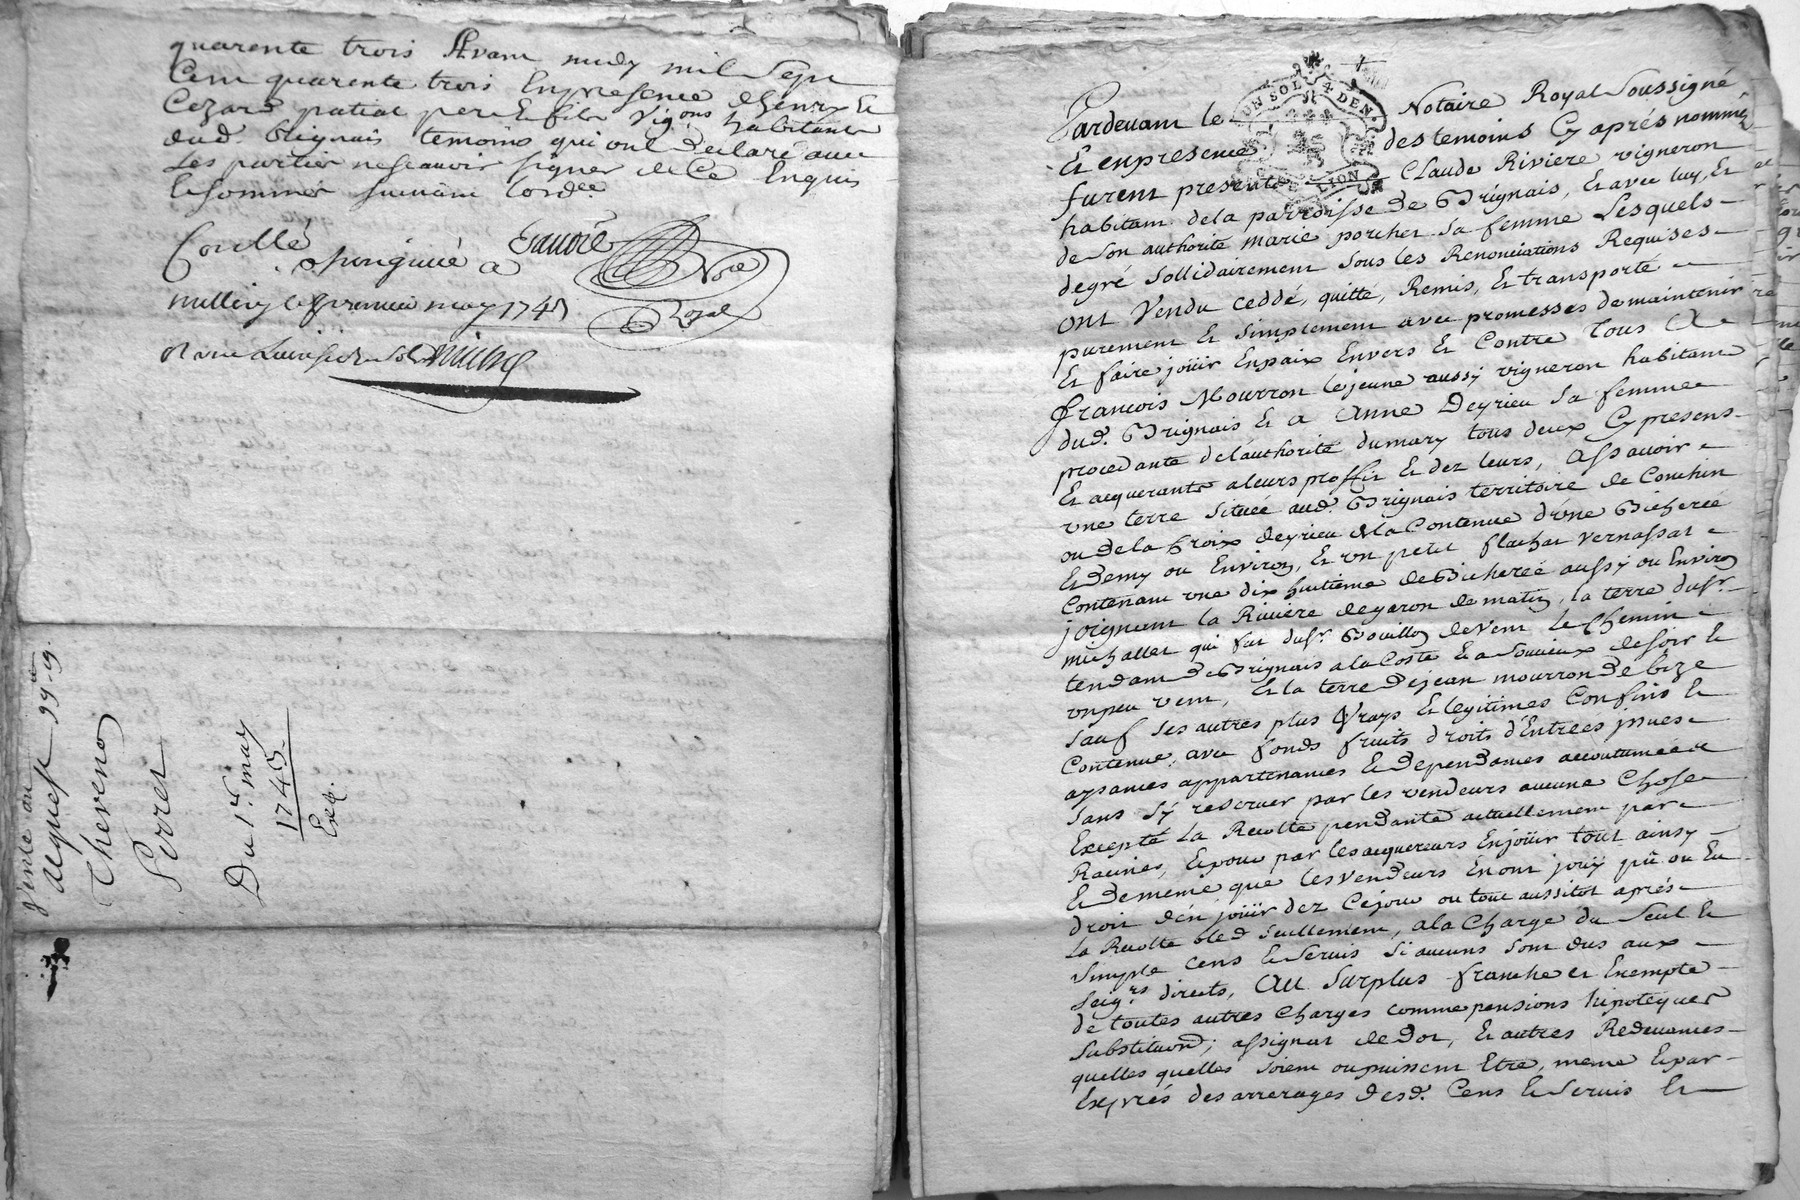 quarente trois Avant midy mil sept
Cent quarente trois En presence d'henry Et
Cezard patial pere Et fils vig.ons habitants
dud. Brignais temoins qui ont declaré avec
Les parties ne scavoir signer de Ce Enquis
Et sommés suivant L'ord.ce
Conllé
a
millery le premier may 1743
Not.re
Royal
Vente au
99
Thevenon
Perret
Du 1er. may
1743
Exp.
UN SOL 4 DEN.
LION
Pardevant le Notaire Royal Soussigné
Et en presence des temoins Cy aprés nommés
furent presents Claude Riviere vigneron
habitant de la parroisse de Brignais, Et avec luy, Et
de son authorité marie porcher sa femme Lesquels
degré sollidairement sous les Renonciations Requises
ont Vendu ceddé, quitté, Remis, Et transporté
purement Et simplement avec promesses de maintenir
Et faire joüir En paix Envers Et Contre tous A
francois Mourron le jeune aussy vigneron habitant
dud. Brignais Et a Anne Deyrieu sa femme
procedante de l'authorité du mary tous deux Cy presens
Et acquerants a leurs proffit Et dez leurs, Assavoir
une terre Située aud. Brignais territoire de Conchin
ou de la Croix deyrieu de la Contenue d'une Bicherée
Et demy ou Environ, Et un petit flachat vernassat
Contenant une dix huitieme de Bicherée aussy ou Environ
joignant la Riviere de garon de matin, la terre du sr.
michallet qui fut du sr. Bouillon de vent le Chemin
tendant de Brignais a la Coste Et a Souvieux de soir Et
un peu vent, Et la terre de jean mourron de bize
sauf ses autres plus Vrays Et legitimes Confins Et
Contenue, avec fonds fruits droits d'Entrees issues
aysances appartenances Et dependances accoutumées
sans s'y reserver par les vendeurs aucune Chose
Excepté La Recolte pendante actuellement par
Racines, Et pour par les acquereurs En joüir tout ainsy
Et de meme que les vendeurs En ont jouy pû ou Eu
droit d'en joüir dez Ce jour ou tout aussitot aprés
La Recolte bled seullement, a la Charge du Seul Et
simple cens Et Servis Si aucuns sont dus aux
Seig.rs directs, Au Surplus franche et Exempte
de toutes autres Charges comme pensions hipoteques
Substituon, assignat de Dot, Et autres Redevances
quelles quelles soient ou puissent Etre, meme Et par
Exprés des arrerages desd. Cens Et Servis Et